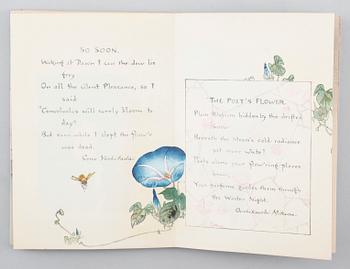 SO SOON.
Waking at Dawn I saw the dew lie
On all the silent Pleasance, so I
said
"Convolvulus will surely bloom to
day"
But even while I slept the flow'r
was dead.
THE POET'S FLOWER.
Plum Blossom hidden by the drifted
snow
Beneath the Moon's cold radiance
yet more white!
Poets alone your flow'ring-places
know
Your perfume guides them through
the Winter Night.